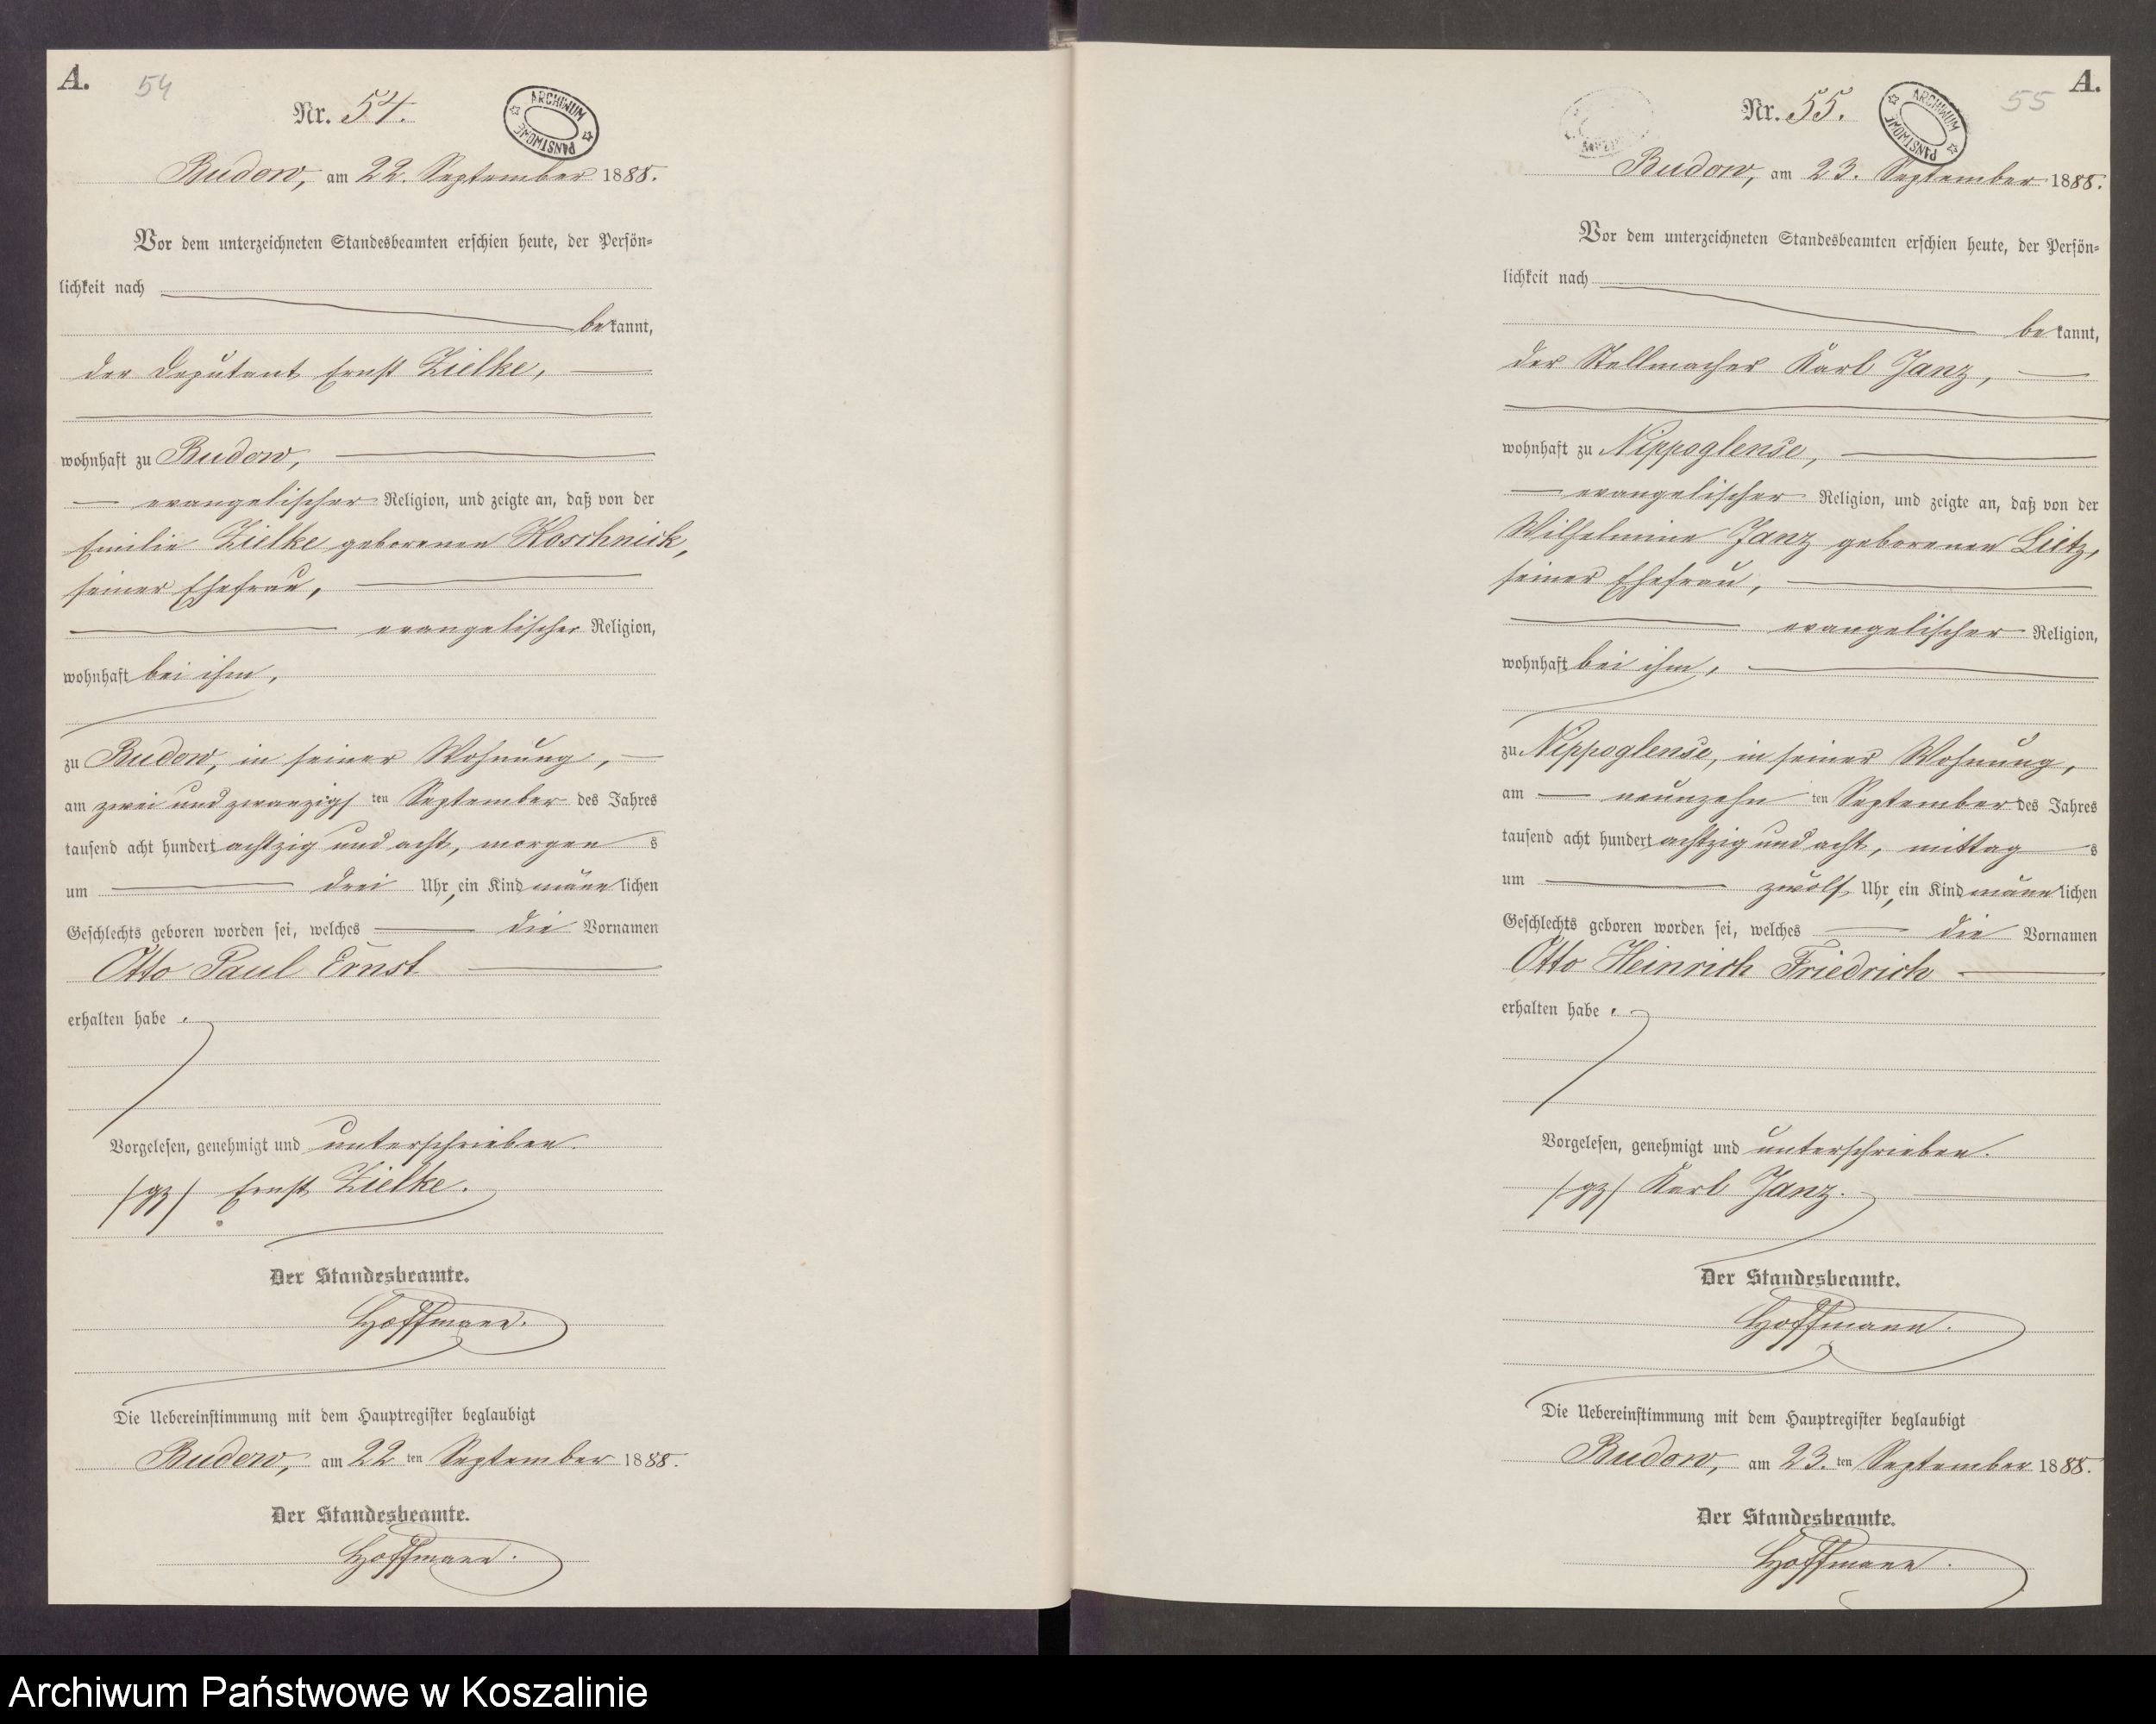 A. 54
Nr. 54.
ARCHIWUM PAŃSTWOWE
Budow, am 22. September 1888.
Vor dem unterzeichneten Standesbeamten erschien heute, der Persön=
lichkeit nach
bekannt,
der Deputant Ernst Zielke,
wohnhaft zu Budow,
evangelischer Religion, und zeigte an, daß von der
Emilie Zielke geborenen Koschnick,
seiner Ehefrau,
evangelischer Religion,
wohnhaft bei ihm,
zu Budow, in seiner Wohnung,
am zwei und zwanzigsten September des Jahres
tausend acht hundert achtzig und acht, morgens
um drei Uhr, ein Kind männlichen
Geschlechts geboren worden sei, welches die Vornamen
Otto Paul Ernst
erhalten habe.
Vorgelesen, genehmigt und unterschrieben.
/gz/ Ernst Zielke.
Der Standesbeamte.
Hoffmann.
Die Uebereinstimmung mit dem Hauptregister beglaubigt
Budow, am 22ten September 1888.
Der Standesbeamte.
Hoffmann.
A.
Nr. 55. 55
ARCHIWUM PAŃSTWOWE
Budow, am 23. September 1888.
Vor dem unterzeichneten Standesbeamten erschien heute, der Persön=
lichkeit nach
bekannt,
der Stellmacher Karl Janz,
wohnhaft zu Nippoglense,
evangelischer Religion, und zeigte an, daß von der
Wilhelmine Janz geborenen Lietz,
seiner Ehefrau,
evangelischer Religion,
wohnhaft bei ihm,
zu Nippoglense, in seiner Wohnung,
am neunzehnten September des Jahres
tausend acht hundert achtzig und acht, mittags
um zwölf Uhr, ein Kind männlichen
Geschlechts geboren worden sei, welches die Vornamen
Otto Heinrich Friedrich
erhalten habe.
Vorgelesen, genehmigt und unterschrieben.
/gz/ Karl Janz.
Der Standesbeamte.
Hoffmann.
Die Uebereinstimmung mit dem Hauptregister beglaubigt
Budow, am 23.ten September 1888.
Der Standesbeamte.
Hoffmann.
Archiwum Państwowe w Koszalinie